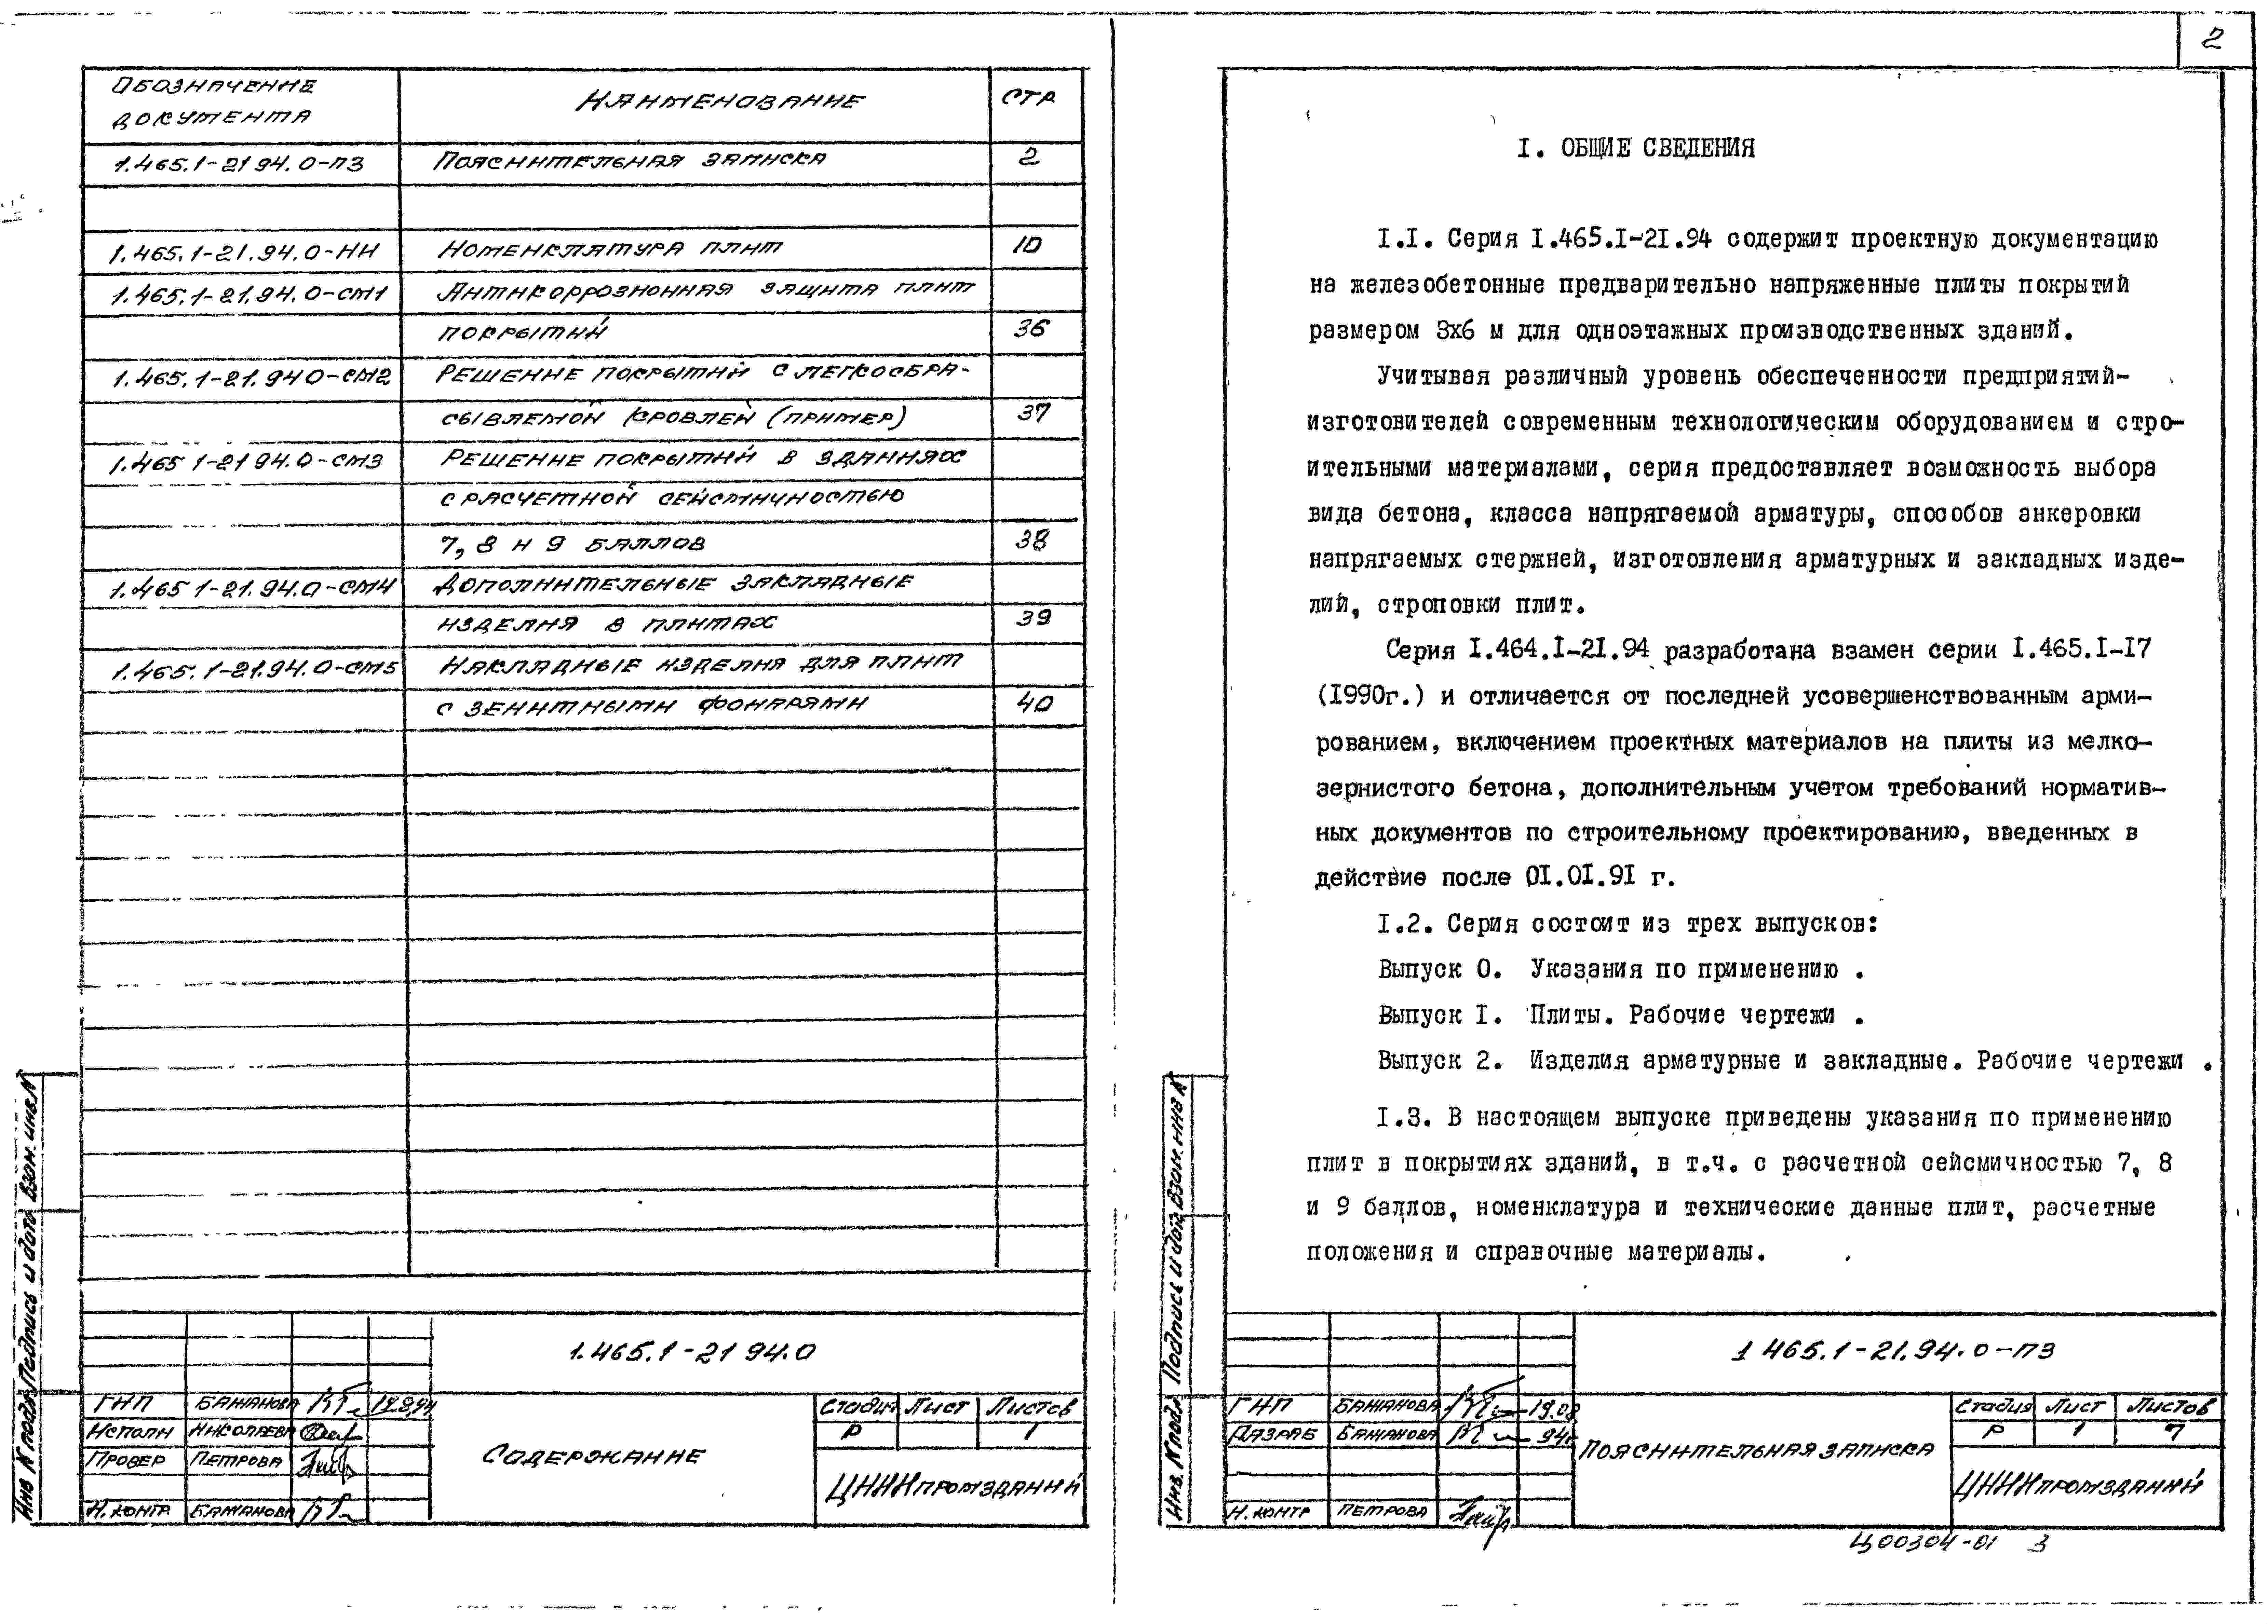 Обозначение документа Наименование Стр
1.465.1-21 94.0-ПЗ Пояснительная записка 2
1.465.1-21.94.0-НИ Номенклатура плит 10
1.465.1-21.94.0-СМ1 Антикоррозионная защита плит
покрытий 36
1.465.1-21.94 0-СМ2 Решение покрытий с легкосбра-
сываемой кровлей (пример) 37
1.465 1-21 94.0-СМ3 Решение покрытий в зданиях
с расчетной сейсмичностью
7, 8 и 9 баллов 38
1.465 1-21.94.0-СМ4 Дополнительные закладные
изделия в плитах 39
1.465.1-21.94.0-СМ5 Накладные изделия для плит
с зенитными фонарями 40
Инв N подл. Подпись и дата Взам. инв. N
1.465.1-21 94.0
ГИП Бажанова 19.8.94
Исполн Николаева
Провер Петрова
Н.контр Бажанова
Содержание
Стадия Лист Листов
Р 1
ЦНИИпромзданий
2
I. ОБЩИЕ СВЕДЕНИЯ
I.I. Серия I.465.I-21.94 содержит проектную документацию
на железобетонные предварительно напряженные плиты покрытий
размером 3х6 м для одноэтажных производственных зданий.
Учитывая различный уровень обеспеченности предприятий-
изготовителей современным технологическим оборудованием и стро-
ительными материалами, серия предоставляет возможность выбора
вида бетона, класса напрягаемой арматуры, способов анкеровки
напрягаемых стержней, изготовления арматурных и закладных изде-
лий, строповки плит.
Серия I.464.I-2I.94 разработана взамен серии I.465.I-I7
(I990г.) и отличается от последней усовершенствованным арми-
рованием, включением проектных материалов на плиты из мелко-
зернистого бетона, дополнительным учетом требований норматив-
ных документов по строительному проектированию, введенных в
действие после 0I.0I.9I г.
I.2. Серия состоит из трех выпусков:
Выпуск 0. Указания по применению .
Выпуск I. Плиты. Рабочие чертежи .
Выпуск 2. Изделия арматурные и закладные. Рабочие чертежи .
I.3. В настоящем выпуске приведены указания по применению
плит в покрытиях зданий, в т.ч. с расчетной сейсмичностью 7, 8
и 9 баллов, номенклатура и технические данные плит, расчетные
положения и справочные материалы.
Инв. N подл. Подпись и дата Взам. инв N
1 465.1-21.94.0-ПЗ
ГИП Бажанова 19.08
Разраб Бажанова 94г
Н.контр Петрова
Пояснительная записка
Стадия Лист Листов
Р 1 7
ЦНИИпромзданий
Ц00304-01 3